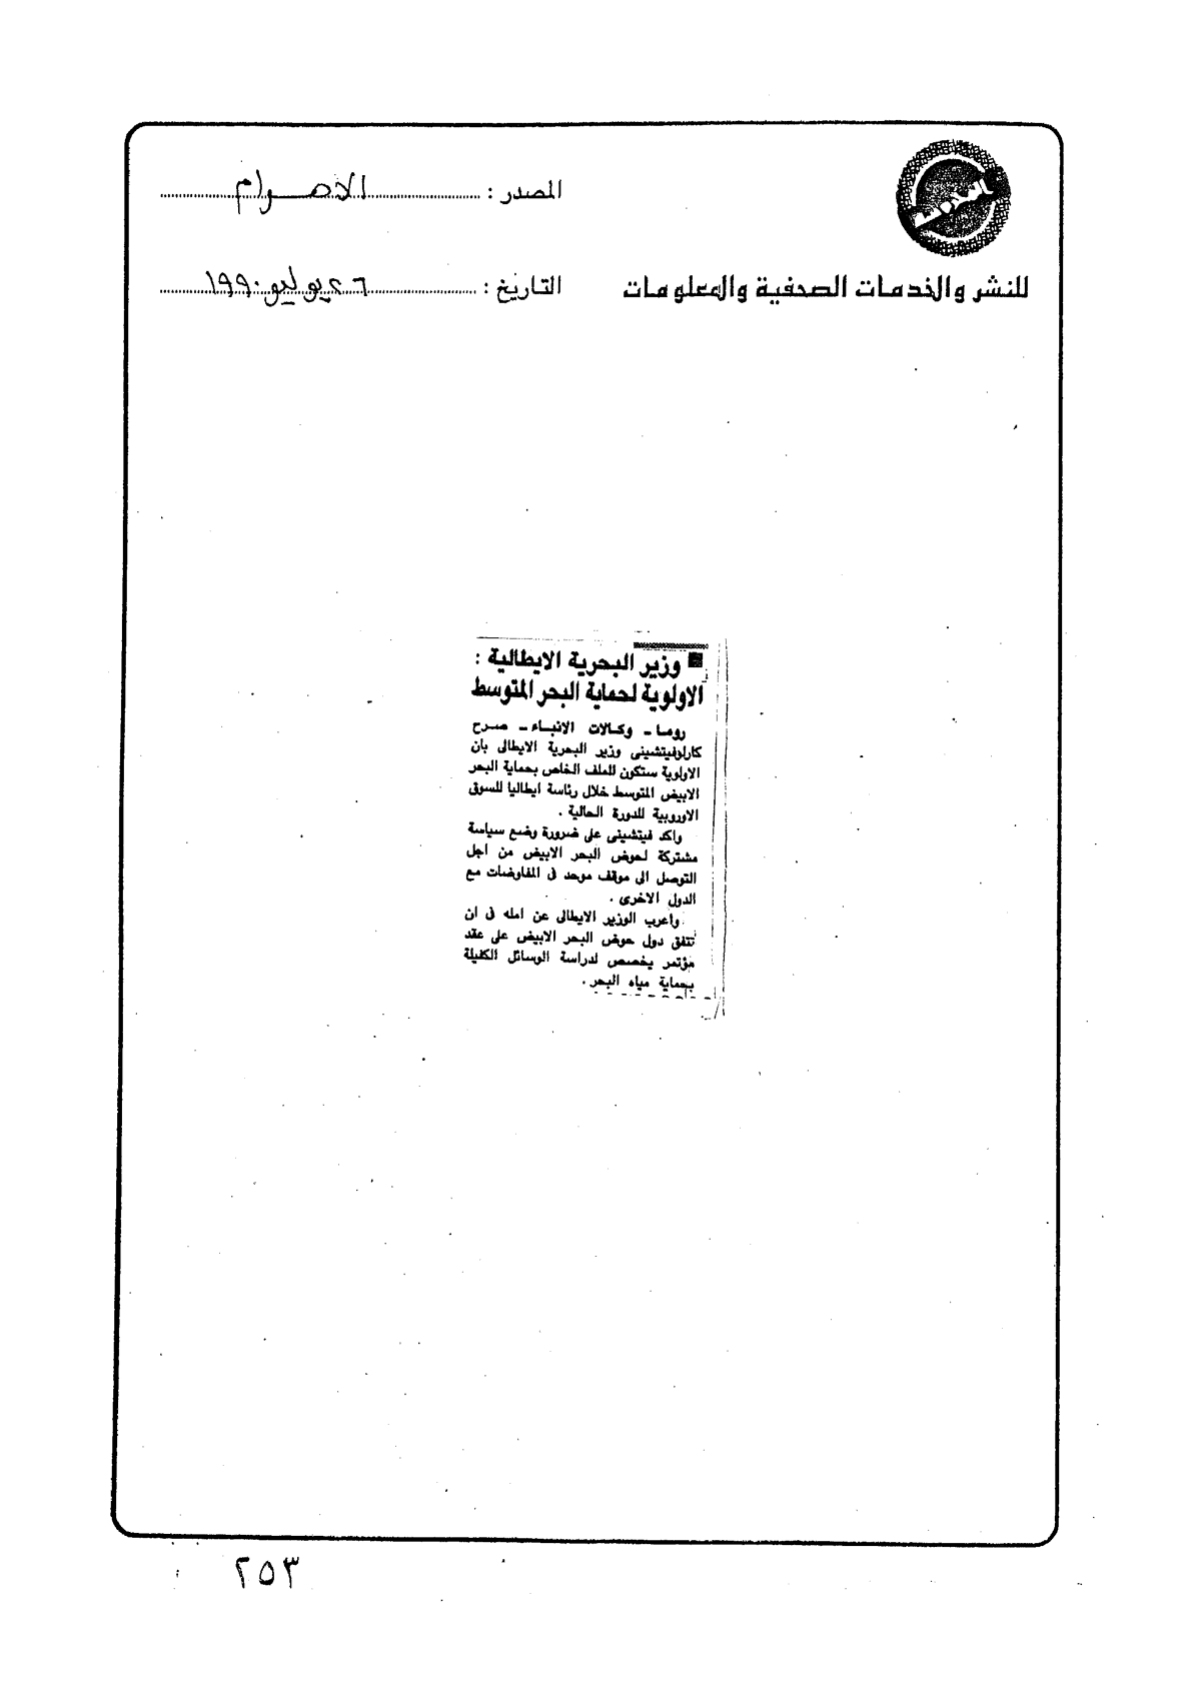 المصدر : الاهرام
للنشر والخدمات الصحفية والمعلومات
التاريخ : ٢٦ يوليو ١٩٩٠
■ وزير البحرية الايطالية :
الاولوية لحماية البحر المتوسط
روما ـ وكالات الانباء ـ صرح
كارلوفيتشينى وزير البحرية الايطالى بان
الاولوية ستكون للملف الخاص بحماية البحر
الابيض المتوسط خلال رئاسة ايطاليا للسوق
الاوروبية للدورة الحالية .
واكد فيتشينى على ضرورة وضع سياسة
مشتركة لحوض البحر الابيض من اجل
التوصل الى موقف موحد فى المفاوضات مع
الدول الاخرى .
واعرب الوزير الايطالى عن امله فى ان
تتفق دول حوض البحر الابيض على عقد
مؤتمر يخصص لدراسة الوسائل الكفيلة
بحماية مياه البحر .
٢٥٣